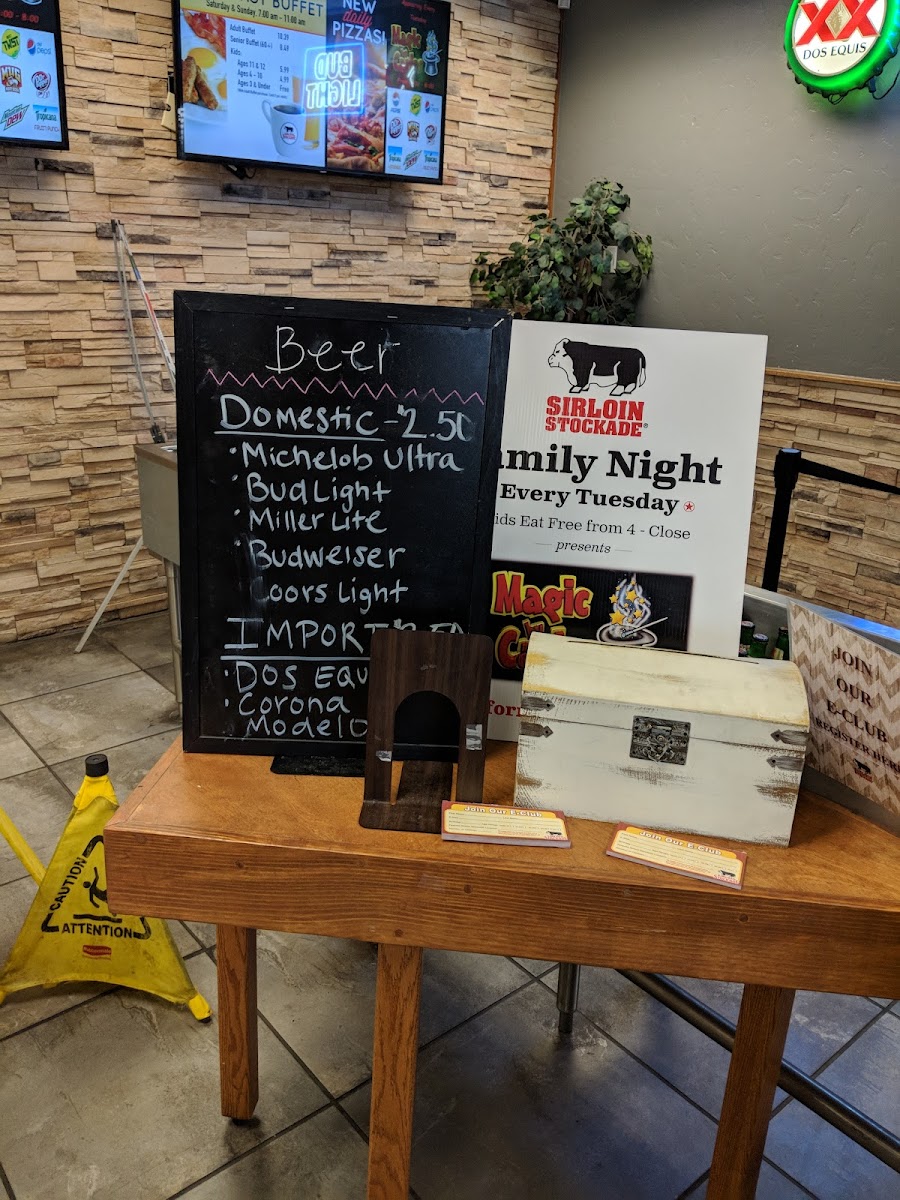 BUFFET
Saturday & Sunday 7:00 am - 11:00 am
Adult Buffet 10.39
Senior Buffet (60+) 8.49
Kids:
Ages 11 & 12 5.99
Ages 4 - 10 4.99
Ages 3 & Under Free
BUD
LIGHT
NEW
daily
PIZZAS!
Magic
pepsi
TWST
MUG
DEW
Tropicana
XX
DOS EQUIS
Beer
Domestic - $2.50
• Michelob Ultra
• Bud Light
• Miller Lite
• Budweiser
Coors Light
IMPORT
• Dos EQU
• Corona
Modelo
SIRLOIN
STOCKADE®
amily Night
Every Tuesday
ids Eat Free from 4 - Close
presents
Magic
JOIN
OUR
E-CLUB
REGISTER HERE
Join Our E-Club
Join Our E-Club
CAUTION
ATTENTION
Rubbermaid